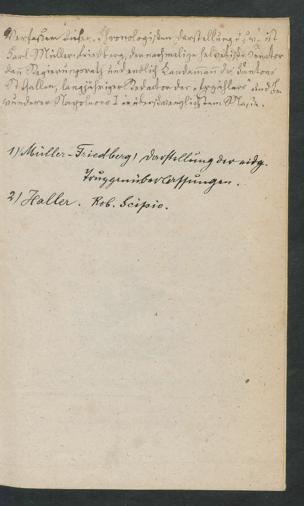 Verfasser dieser "Chronologischen Darstellung u.s.w. ist
Karl Müller-Friedberg, der nachmalige helvetische Senator
dann Regierungsrath und endlich Landammann des Kantons
St. Gallen, langjähriger Redaktor des „Erzählers" und Be-
wunderer Napoleons I in überschwenglichstem Masse.
1) Müller-Friedberg, Darstellung der eidg.
Truppenüberlassungen.
2) Haller. Rob. Scipio.